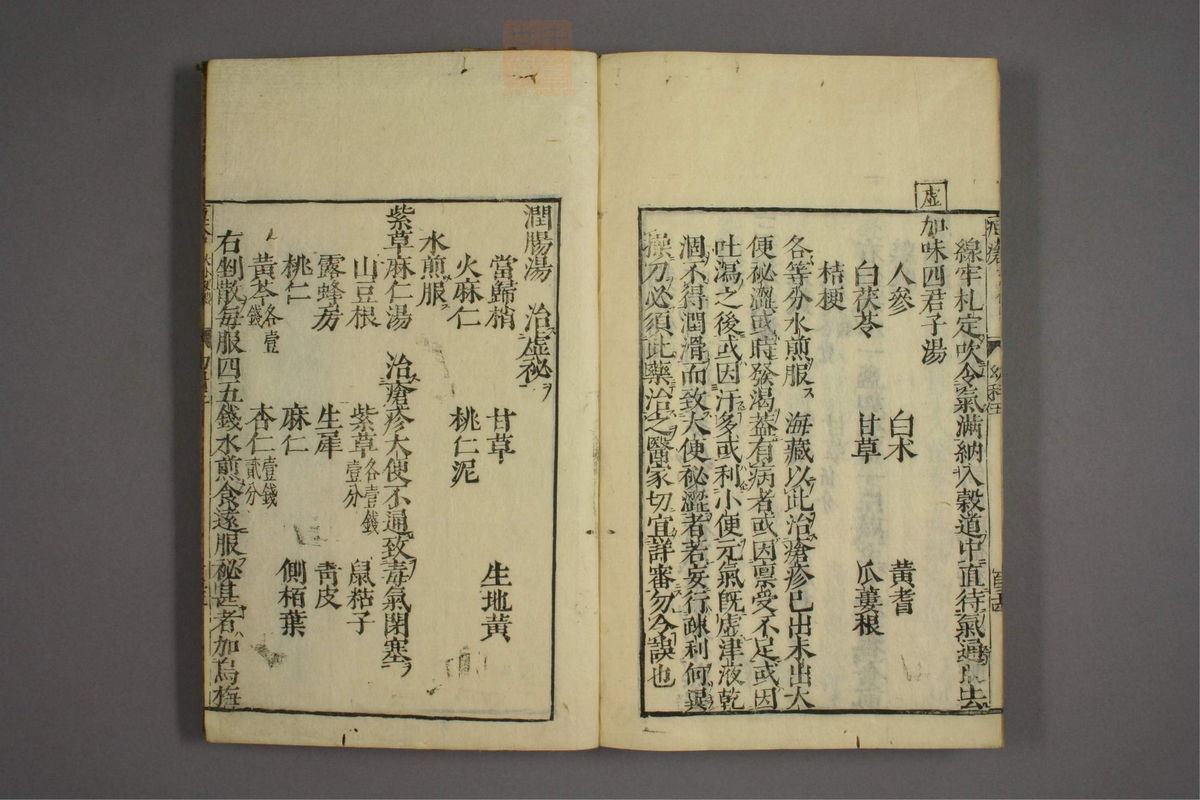 線牢札定吹令氣滿納入穀道中直待氣通取去
虛
加味四君子湯
人參 白朮 黃耆
白茯苓 甘草 瓜蔞根
桔梗
各等分水煎服 海藏以此治瘡疹已出未出大
便祕澀或時發渴蓋有病者或因稟受不足或因
吐瀉之後或因汗多或利小便元氣既虛津液乾
涸不得潤滑而致大便祕澀者若妄行疎利何異
操刀必須此藥治之醫家切宜詳審勿令誤也
潤腸湯 治虛祕
當歸梢 甘草 生地黃
火麻仁 桃仁泥
水煎服
紫草麻仁湯 治瘡疹大便不通致毒氣閉塞
山豆根 紫草各壹錢壹分 鼠粘子
露蜂房 生犀 靑皮
桃仁 麻仁 側栢葉
黃芩各壹錢 杏仁壹錢貳分
右剉散每服四五錢水煎食遠服祕甚者加烏梅